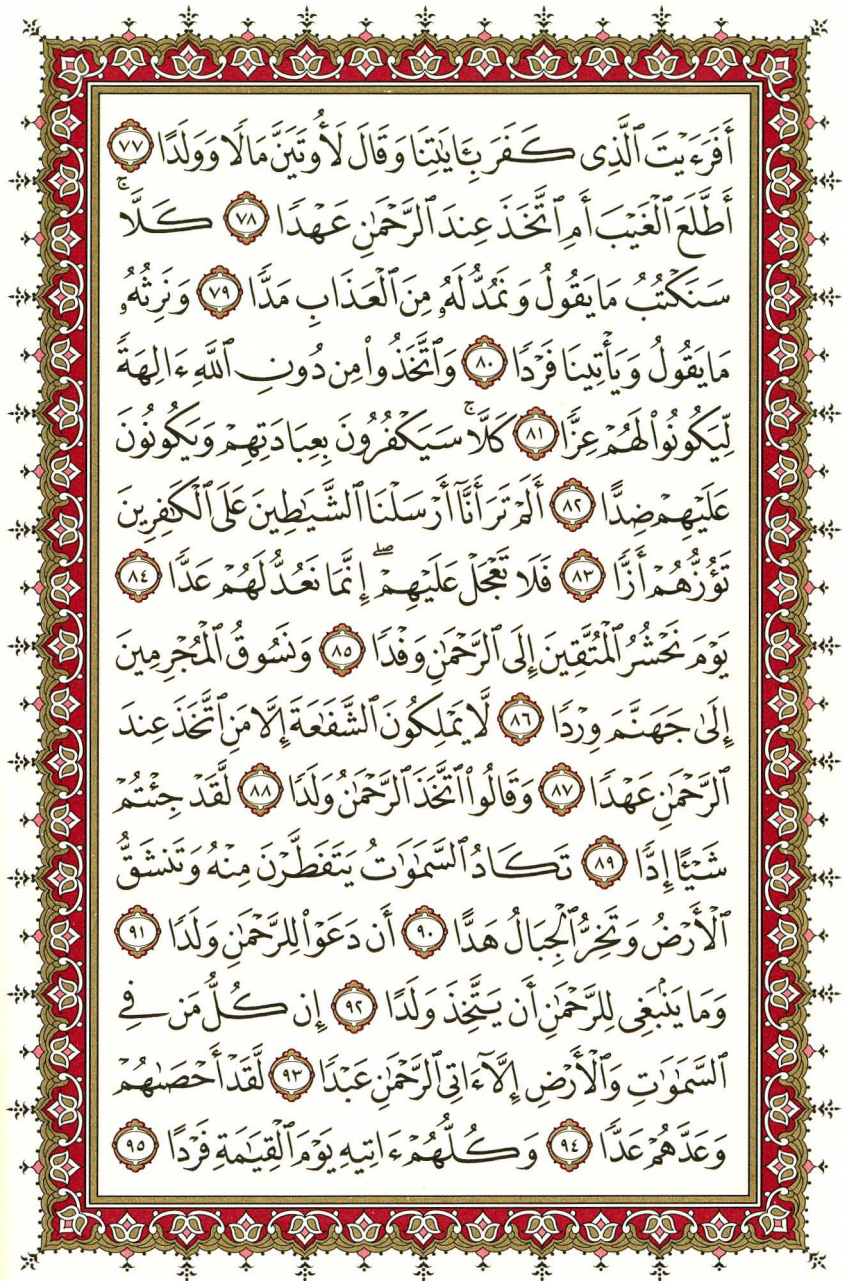 أَفَرَءَيۡتَ ٱلَّذِى كَفَرَ بِـَٔايَٰتِنَا وَقَالَ لَأُوتَيَنَّ مَالًا وَوَلَدًا ٧٧
أَطَّلَعَ ٱلۡغَيۡبَ أَمِ ٱتَّخَذَ عِندَ ٱلرَّحۡمَٰنِ عَهۡدًا ٧٨ كَلَّاۚ
سَنَكۡتُبُ مَا يَقُولُ وَنَمُدُّ لَهُۥ مِنَ ٱلۡعَذَابِ مَدًّا ٧٩ وَنَرِثُهُۥ
مَا يَقُولُ وَيَأۡتِينَا فَرۡدًا ٨٠ وَٱتَّخَذُواْ مِن دُونِ ٱللَّهِ ءَالِهَةً
لِّيَكُونُواْ لَهُمۡ عِزًّا ٨١ كَلَّاۚ سَيَكۡفُرُونَ بِعِبَادَتِهِمۡ وَيَكُونُونَ
عَلَيۡهِمۡ ضِدًّا ٨٢ أَلَمۡ تَرَ أَنَّآ أَرۡسَلۡنَا ٱلشَّيَٰطِينَ عَلَى ٱلۡكَٰفِرِينَ
تَؤُزُّهُمۡ أَزًّا ٨٣ فَلَا تَعۡجَلۡ عَلَيۡهِمۡۖ إِنَّمَا نَعُدُّ لَهُمۡ عَدًّا ٨٤
يَوۡمَ نَحۡشُرُ ٱلۡمُتَّقِينَ إِلَى ٱلرَّحۡمَٰنِ وَفۡدًا ٨٥ وَنَسُوقُ ٱلۡمُجۡرِمِينَ
إِلَىٰ جَهَنَّمَ وِرۡدًا ٨٦ لَّا يَمۡلِكُونَ ٱلشَّفَٰعَةَ إِلَّا مَنِ ٱتَّخَذَ عِندَ
ٱلرَّحۡمَٰنِ عَهۡدًا ٨٧ وَقَالُواْ ٱتَّخَذَ ٱلرَّحۡمَٰنُ وَلَدًا ٨٨ لَّقَدۡ جِئۡتُمۡ
شَيۡـًٔا إِدًّا ٨٩ تَكَادُ ٱلسَّمَٰوَٰتُ يَتَفَطَّرۡنَ مِنۡهُ وَتَنشَقُّ
ٱلۡأَرۡضُ وَتَخِرُّ ٱلۡجِبَالُ هَدًّا ٩٠ أَن دَعَوۡاْ لِلرَّحۡمَٰنِ وَلَدًا ٩١
وَمَا يَنۢبَغِى لِلرَّحۡمَٰنِ أَن يَتَّخِذَ وَلَدًا ٩٢ إِن كُلُّ مَن فِى
ٱلسَّمَٰوَٰتِ وَٱلۡأَرۡضِ إِلَّآ ءَاتِى ٱلرَّحۡمَٰنِ عَبۡدًا ٩٣ لَّقَدۡ أَحۡصَىٰهُمۡ
وَعَدَّهُمۡ عَدًّا ٩٤ وَكُلُّهُمۡ ءَاتِيهِ يَوۡمَ ٱلۡقِيَٰمَةِ فَرۡدًا ٩٥